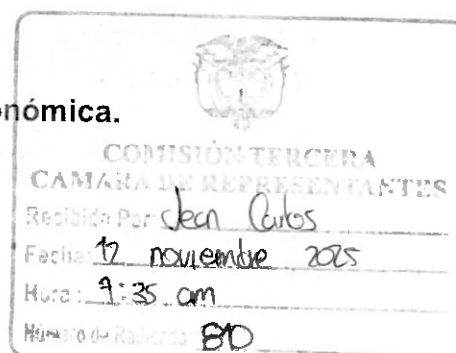 onómica.
COMISIÓN TERCERA
CAMARA DE REPRESENTANTES
Recibido Por: Jean Carlos
Fecha: 12 noviembre 2025
Hora: 9:35 am
Número de Radicado: 810